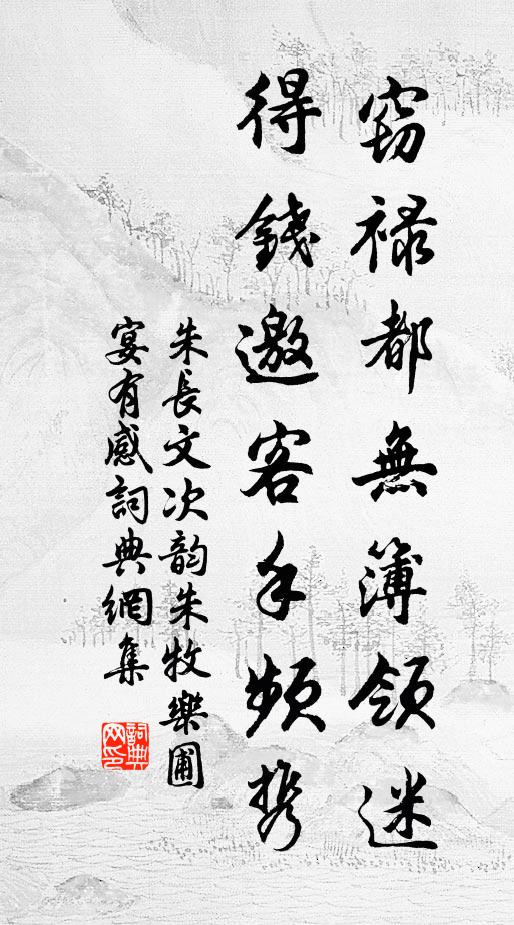 窃禄都無簿領迷
得錢邀客手頻携
朱長文次韵朱牧樂圃
宴有感詞典網集
詞典网印